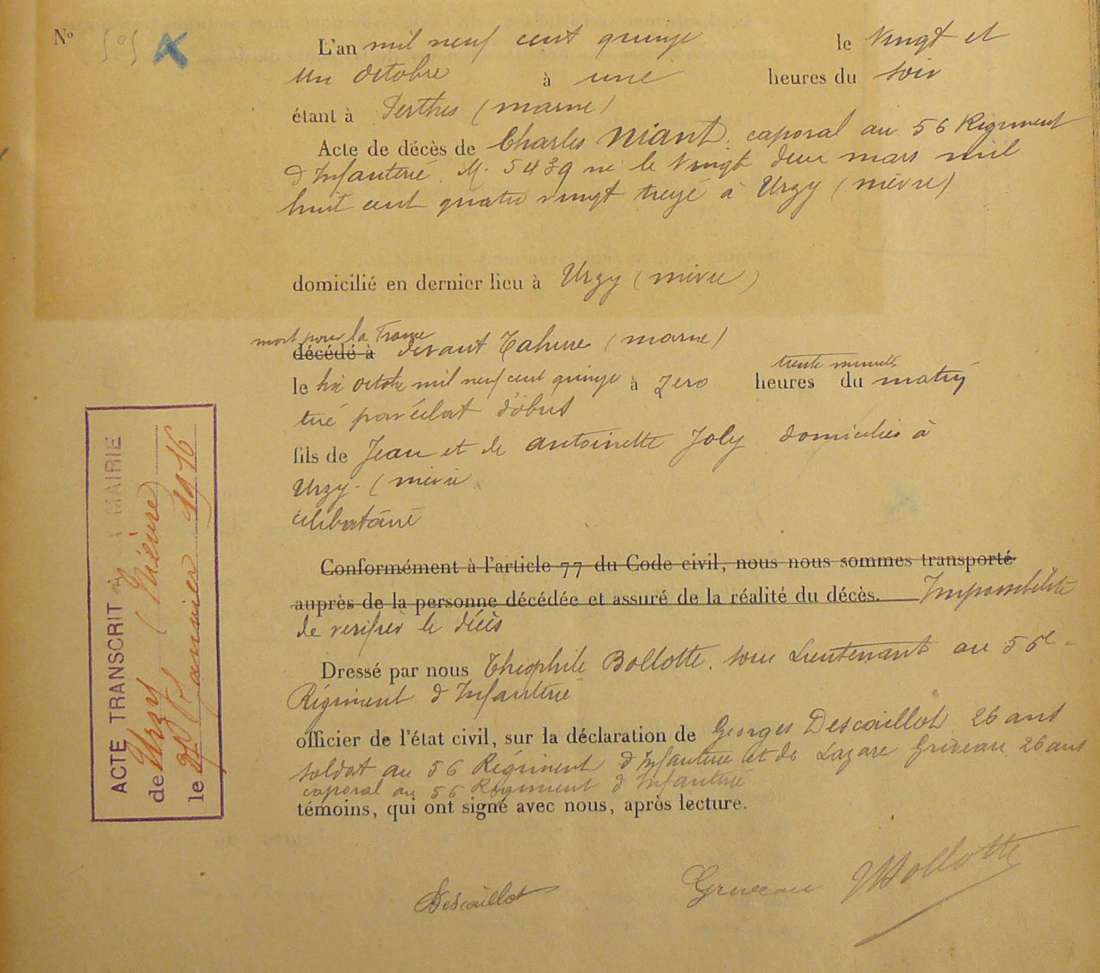 N° 505
L'an mil neuf cent quinze le vingt et
un octobre à une heures du soir
étant à Perthes (marne)
Acte de décès de Charles Niant. caporal au 56 Régiment
d'Infanterié. M. 5439 né le vingt deux mars mil
huit cent quatre vingt treize à Urzy (nièvre)
domicilié en dernier lieu à Urzy (nièvre)
mort pour la France
décédé à devant Tahure (marne)
trente minutes
le six octobre mil neuf cent quinze à zero heures du matin
tué par éclat d'obus
fils de Jean et de antoinette Joly domicilies à
Urzy. (nièvre
celibataire
Conformément à l'article 77 du Code civil, nous nous sommes transporté
auprès de la personne décédée et assuré de la réalité du décès. Impossibilité
de verifier le décès
Dressé par nous Théophile Bollotte. sous Lieutenant au 56e
Régiment d'Infanterié
officier de l'état civil, sur la déclaration de Georges Descaillot 26 ans
soldat au 56 Régiment d'Infanterie et de Lazare Griveau 26 ans
caporal au 56 Régiment d'Infanterié
témoins, qui ont signé avec nous, après lecture.
Descaillot Griveau Bollotte
ACTE TRANSCRIT MAIRIE
de Urzy (Nièvre)
le Janvier 1916